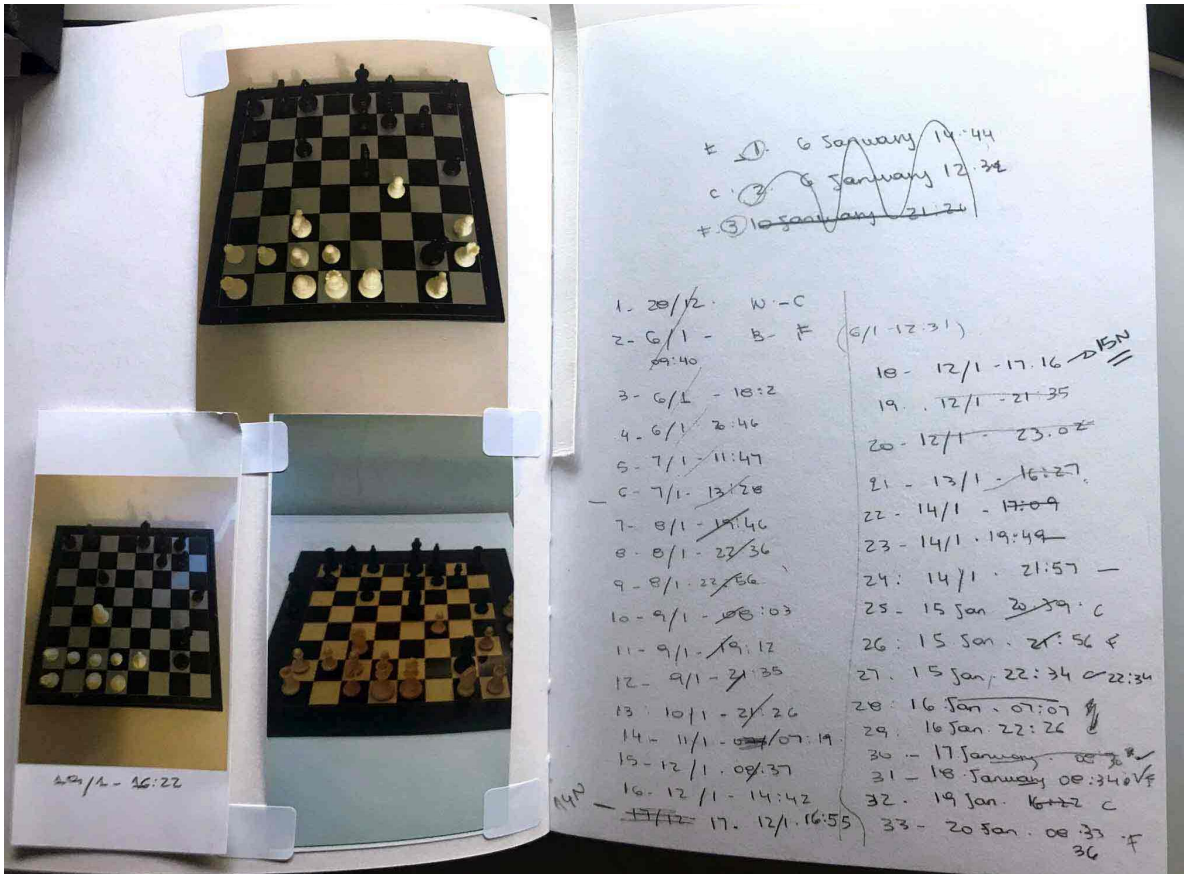 1. 6 January 14:44
C. 2. 6 January 12.32
F. 3 10 January 21:26
1- 28/12. W.-C
2- 6/1 - B- F (6/1-12.31)
09:40
3- 6/1 - 18:2
4- 6/1 20:46
5- 7/1 - 11:47
6- 7/1- 13:28
7- 8/1 - 19:46
8- 8/1 - 22:36
9- 8/1. 22:56
10- 9/1 - 08:03
11- 9/1- 19:12
12- 9/1- 21:35
13: 10/1- 21:26
14- 11/1- /07:19
15-12/1. 08:37
16. 12/1- 14:42
14N - 17/12 17. 12/1.16:55
18- 12/1-17.16 → 15N
19. . 12/1-21:35
20- 12/1- 23.02
21 - 13/1 - 16:27
22- 14/1 - 17:09
23- 14/1. 19:49
24: 14/1. 21:57 —
25- 15 Jan 20.39. C
26: 15 Jan. 21:56 F
27. 15 Jan, 22:34 C 22:34
28: 16 Jan. 07:07
29. 16 Jan. 22:26
30 - 17 January 08 30
31 - 18 January 08:34 F
32. 19 Jan. 16:22 C
33- 20 Jan. 08.33 F
36
19/1- 16:22